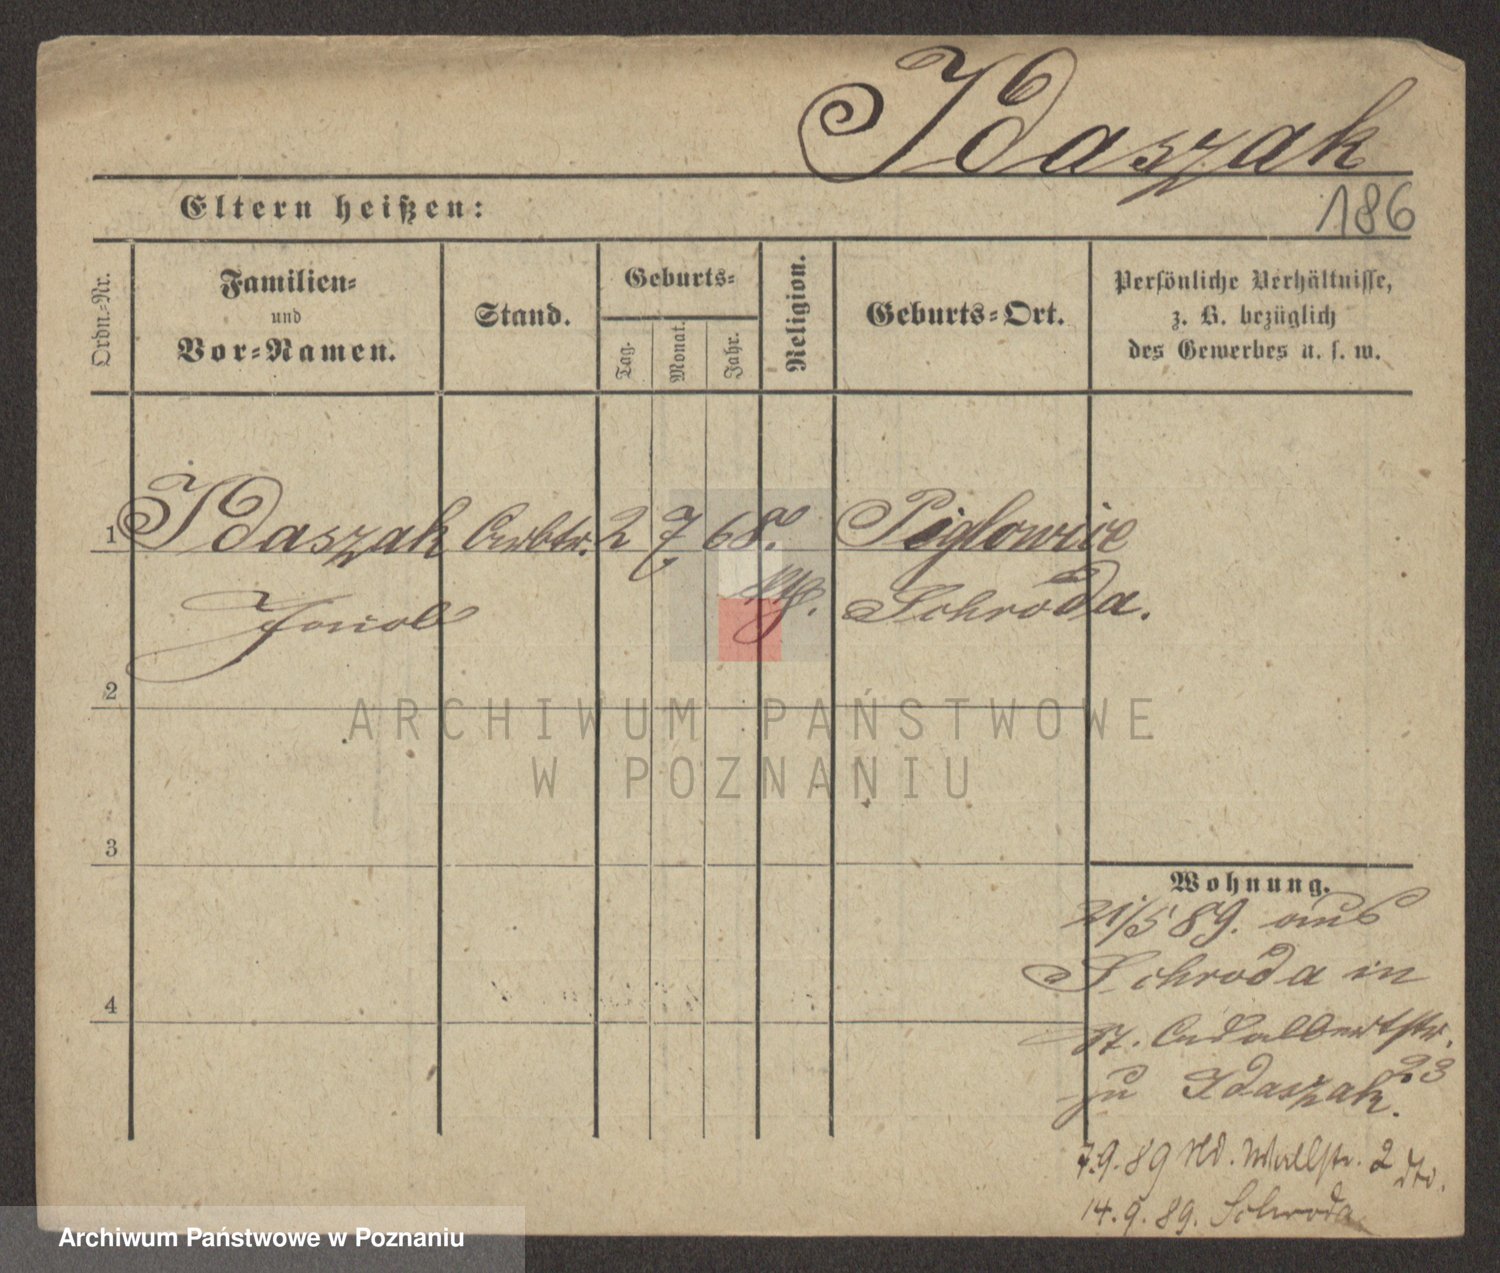 Idaszak
Eltern heißen:
186
Ordn.-Nr.
Familien-
und
Vor-Namen.
Stand.
Geburts-
Tag.
Monat.
Jahr.
Religion.
Geburts-Ort.
Persönliche Verhältnisse,
z. B. bezüglich
des Gewerbes u. s. w.
1 Idaszak Arbtr. 2 7 68. Piglowice
Schroda.
2
ARCHIWUM PAŃSTWOWE
W POZNANIU
3
Wohnung.
21/5 89. aus
Schroda in
St. Adalbertstr.
23
zu Idaszak.
4
7.9.89 Wallstr. 2
14.9.89. Schroda
Archiwum Państwowe w Poznaniu